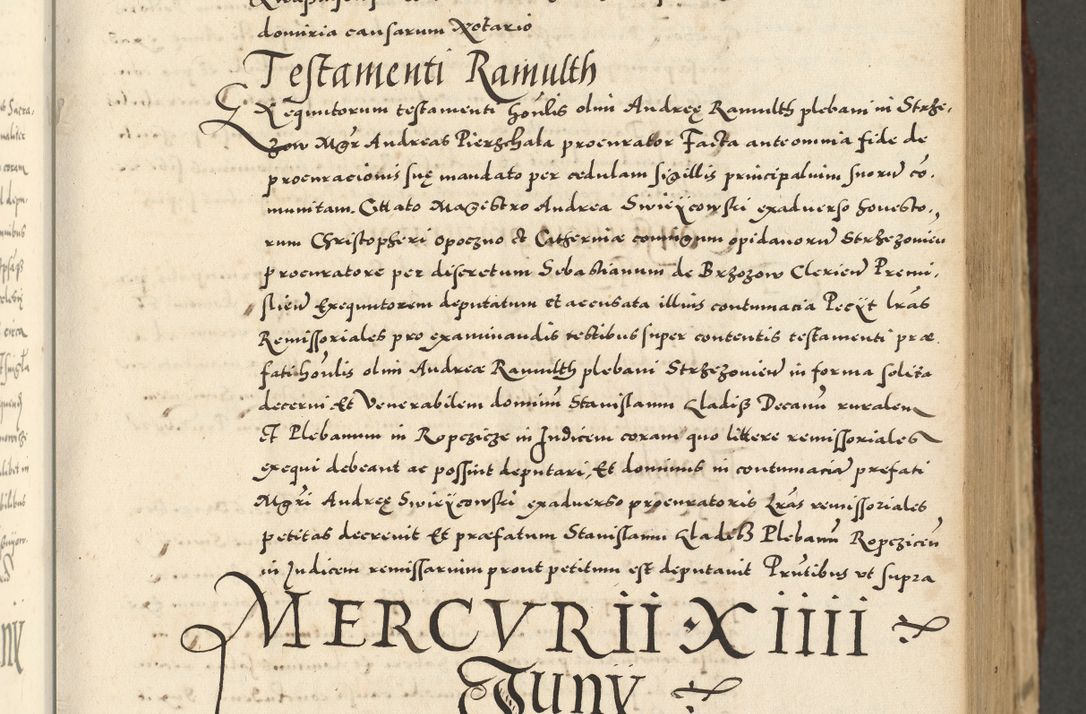 dominia causarum Notario
Testamenti Ramulth
Exequutorum testamenti honlis olim Andreę Ramulth plebani in Strže,
zow Mgr Andreas Pierzchala procurator Facta ante omnia fide de
procuracionis suę mandato per cedulam sigillis principalium suorū cō,
munitam. Cittato Magistro Andrea Swieÿcowski exadverso honesto,
rum Christopheri Opoczno & Catherniæ coniugum opidanorū Stržezonien
procuratore per discretum Sebastianum de Brzozow Clericū Premi,
slien̄ Exequutorem deputatum et accusata illius contumacia Pecijt lrās
Remissoriales pro examinandis testibus super contentis testamenti præ
fati honlis olim Andreæ Ramulth plebani Strzezonien̄ in forma solita
decerni Et Venerabilem dominū Stanislaum Gladisz Decanū ruralem
Et Plebanum in Ropczicze in Iudicem coram quo littere remissoriales
exequi debeant ac possint deputari, Et dominus in contumaciā prefati
Mgri Andreę Swieÿcowski exadverso procuratoris Lrās remissoriales
petitas decrevit Et præfatum Stanislaum Gladisz Plebanū Ropczicen̄
in Iudicem remissarium prout petitum est deputavit Prntibus vt supra
MERCVRII · XIIII
Iuny